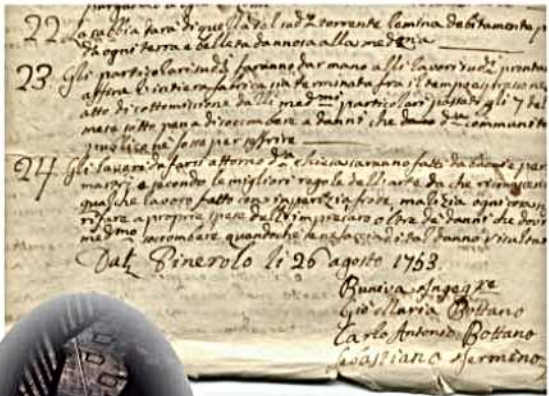 22 La sabbia sarà di quella del sud.º torrente Lemina debitamente
da ogni terra e belletta dannosa alla medema
23 Gli particolari sud.i faranno dar mano alli lavori sud.i
affinché intiera fabrica sia terminata fra il tempo
atto di sottomissione dalli med.mi particolari passato gli 7 del
mese sotto pena di soccombere a danni che d.ta communità
publico ne possa per soffrire
24 Gli lavori da farsi attorno d.a chiesa saranno fatti da e per
mastri e secondo le migliori regole dell'arte da che
qualche lavoro fatto con imperizia frode, malizia ogni
rifare a proprie spese dell'impresaro oltre de danni che
med.mo soccombere quandoche ne tal danno
Dat. Pinerolo li 26 agosto 1753
Buniva Ingeg.re
Gio Maria Bottano
Carlo Antonio Bottano
Sebastiano